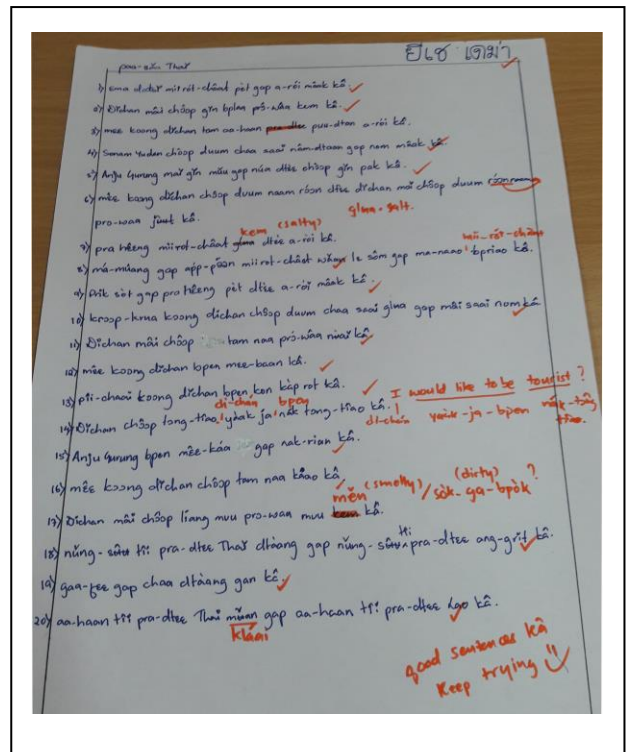 ยีเช เดม่า
paa-săa Thai
mii rot-châat pèt gap a-ròi mâak kâ
2) Dichan mâi chôop gin bplaa pró-wâa kem kâ.
3) mêe koong dichan tam aa-haan a-ròi kâ.
4) chôop duum chaa saai nám-dtaan gap nom mâak kâ
5) Anju Gurung mâi gin múu gap núa dtèe chôop gin pak kâ.
6) mêe koong dichan chôop duum naam róon dtèe dichan mâi chôop duum róon
pro-waa jùut kâ.
glua - salt.
kem (salty)
7) pra hěeng mii rot-châat dtèe a-ròi kâ.
mii-rót-châat
8) má-múang gap mii rot-châat wǎan le sôm gap ma-naao bpriao kâ.
9) prik sòt gap pra hěeng pèt dtèe a-ròi mâak kâ.
10) kroop-krua koong dichan chôop duum chaa saai glua gap mâi saai nom kâ
11) Dichan mâi chôop tam naa pró-wâa kâ
12) mêe koong dichan bpen mee-baan kâ.
13) pii-chaai koong dichan bpen kon kàp rot kâ.
I would like to be tourist?
di-chán bpen
14) Dichan chôop tong-tîao yàak ja nák tong-tîao kâ.
di-chán yàak-ja-bpen nák-tông tîao.
15) Anju Gurung bpen mêe-káa gap nak-rian kâ.
16) mêe koong dichan chôop tam naa kâao kâ
měn (smelly) / (dirty) sòk-ga-bpòk?
17) Dichan mâi chôop liang muu pro-waa muu kem kâ.
18) nǔng-sǔu tîi pra-dtee Thai dtàang gap nǔng-sǔu tîi pra-dtee ang-grìt kâ.
19) gaa-fee gap chaa dtàang gan kâ
20) aa-haan tîi pra-dtee Thai mǔan gap aa-haan tîi pra-dtee Lao kâ.
kláai
good sentences kâ
Keep trying